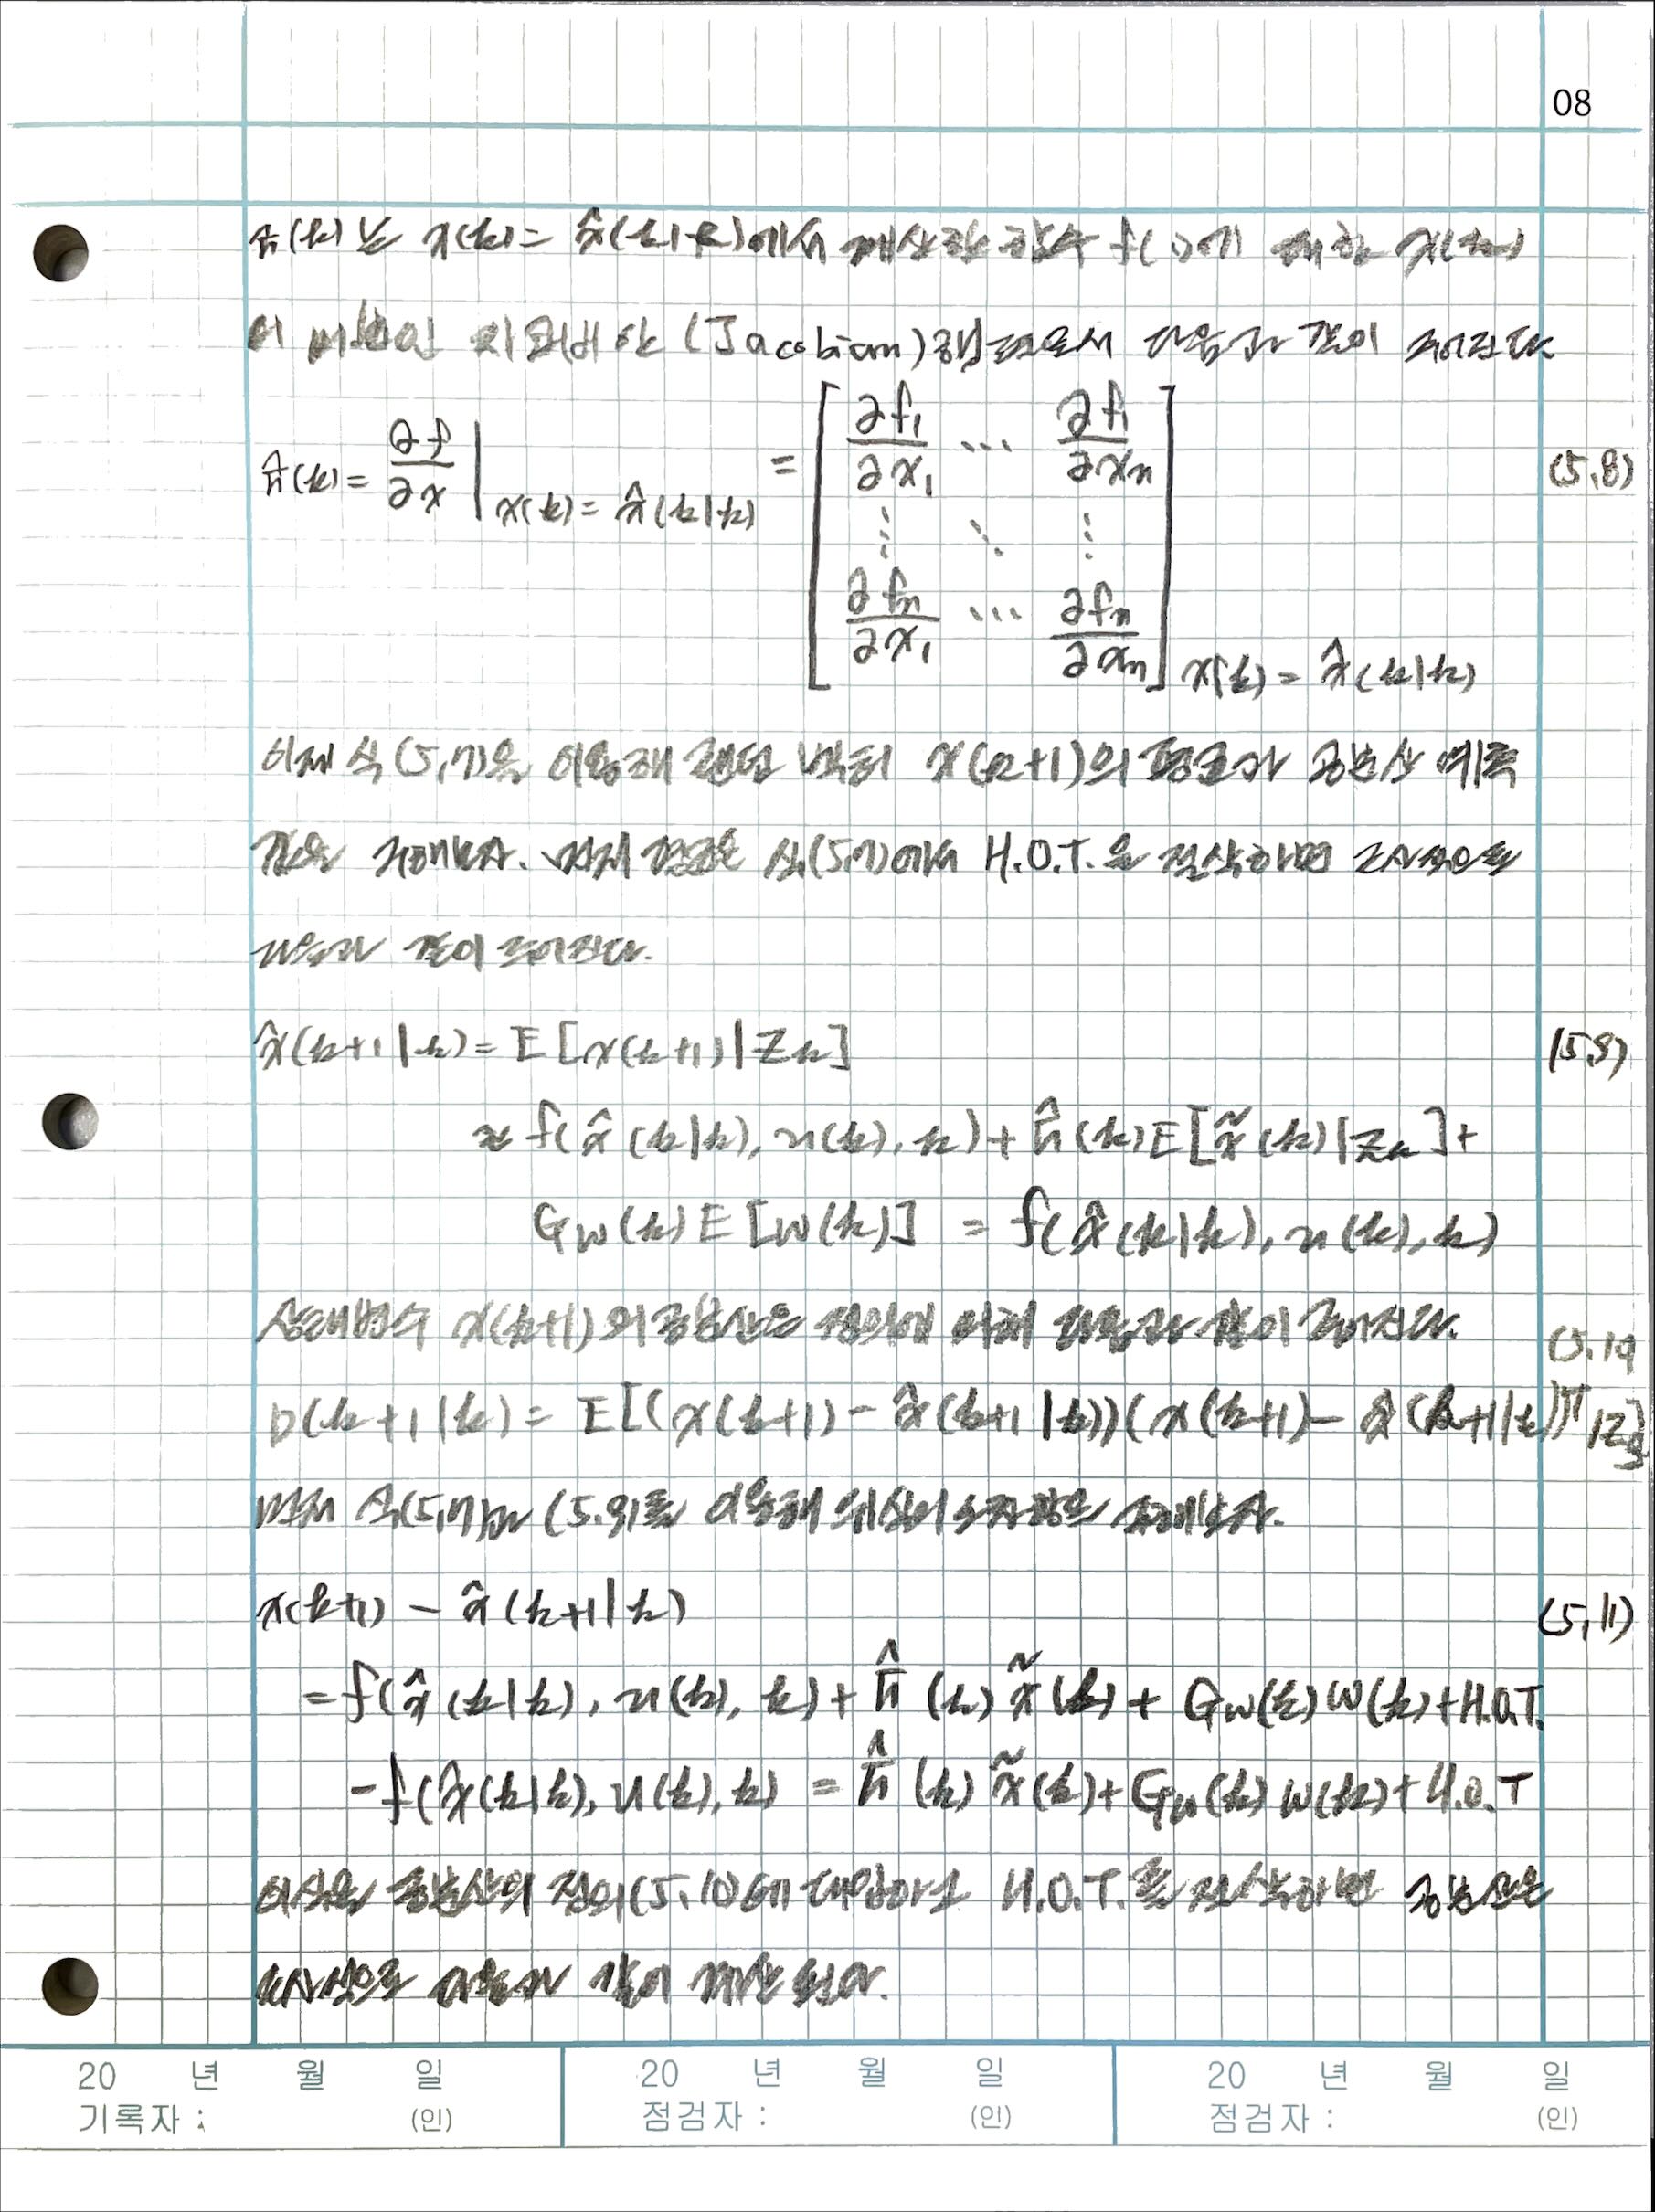 08
F̂(k)는 x(k)=x̂(k|k)에서 계산한 함수 f(·)에 대한 x(k)
의 자코비안 (Jacobian)행렬로서 다음과 같이 주어진다
F̂(k)= ∂f/∂x | x(k)=x̂(k|k) = [ ∂f₁/∂x₁ ⋯ ∂f₁/∂xₙ (5.8)
⋮ ⋱ ⋮
∂fₙ/∂x₁ ⋯ ∂fₙ/∂xₙ ] x(k)=x̂(k|k)
이제 식(5.7)을 이용해 랜덤 벡터 x(k+1)의 평균과 공분산 예측
값을 구해보자. 먼저 평균은 식(5.7)에서 H.O.T.을 절삭하면 근사적으로
다음과 같이 주어진다.
x̂(k+1|k)= E[x(k+1)|Zk] (5.9)
≈ f(x̂(k|k), u(k), k)+F̂(k)E[x̃(k)|Zk]+
Gw(k)E[w(k)] = f(x̂(k|k), u(k), k)
상태변수 x(k+1)의 공분산은 정의에 의해 다음과 같이 주어진다.
(5.10
P(k+1|k)= E[(x(k+1)-x̂(k+1|k))(x(k+1)-x̂(k+1|k))ᵀ|Zk]
먼저 식(5.7)과 (5.9)를 이용해 위 식의 을 전개해보자.
x(k+1) - x̂(k+1|k) (5.11)
=f(x̂(k|k), u(k), k)+F̂(k)x̃(k)+Gw(k)w(k)+H.O.T.
-f(x̂(k|k), u(k), k) = F̂(k)x̃(k)+Gw(k)w(k)+H.O.T
이 식을 공분산의 정의(5.10)에 대입하고 H.O.T.를 절삭하면 공분산은
근사적으로 다음과 같이 계산된다.
20 년 월 일 20 년 월 일 20 년 월 일
기록자 : (인) 점검자 : (인) 점검자 : (인)